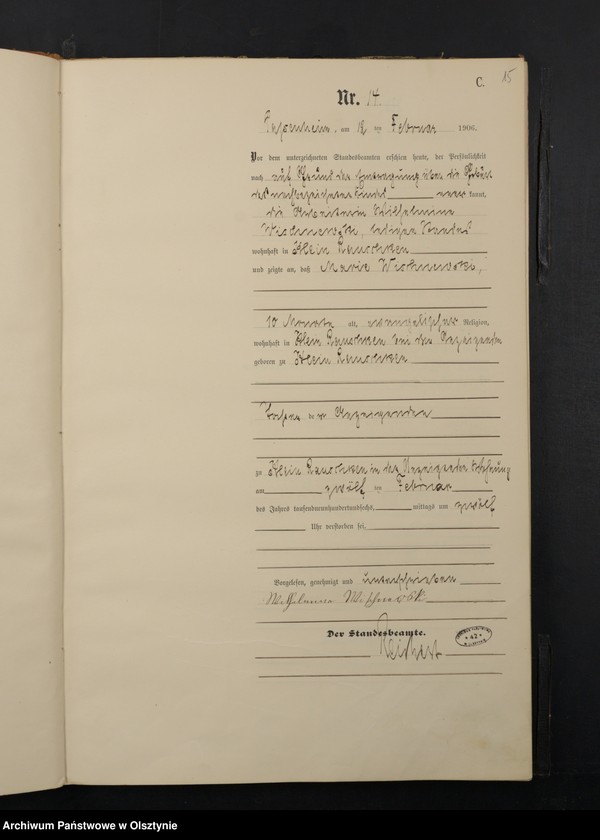 C. 15
Nr. 14.
Passenheim, am 12 ten Februar 1906.
Vor dem unterzeichneten Standesbeamten erschien heute, der Persönlichkeit
nach auf Grund der Eintragung über die Geburt
des nachbezeichneten Kindes kannt,
die Arbeiterin Wilhelmine
Wischnewski, ledigen Standes
wohnhaft in Klein Rauschken
und zeigte an, daß Marie Wischnewski,
10 Monate alt, evangelischer Religion,
wohnhaft in Klein Rauschken bei der Anzeigenden
geboren zu Klein Rauschken
Tochter der Anzeigenden
zu Klein Rauschken in der Anzeigenden Wohnung
am zwölf ten Februar
des Jahres tausendneunhundertundsechs, mittags um zwölf
Uhr verstorben sei.
Vorgelesen, genehmigt und unterschrieben
Wilhelmine Wischnewski
Der Standesbeamte.
Reichert
42
Archiwum Państwowe w Olsztynie